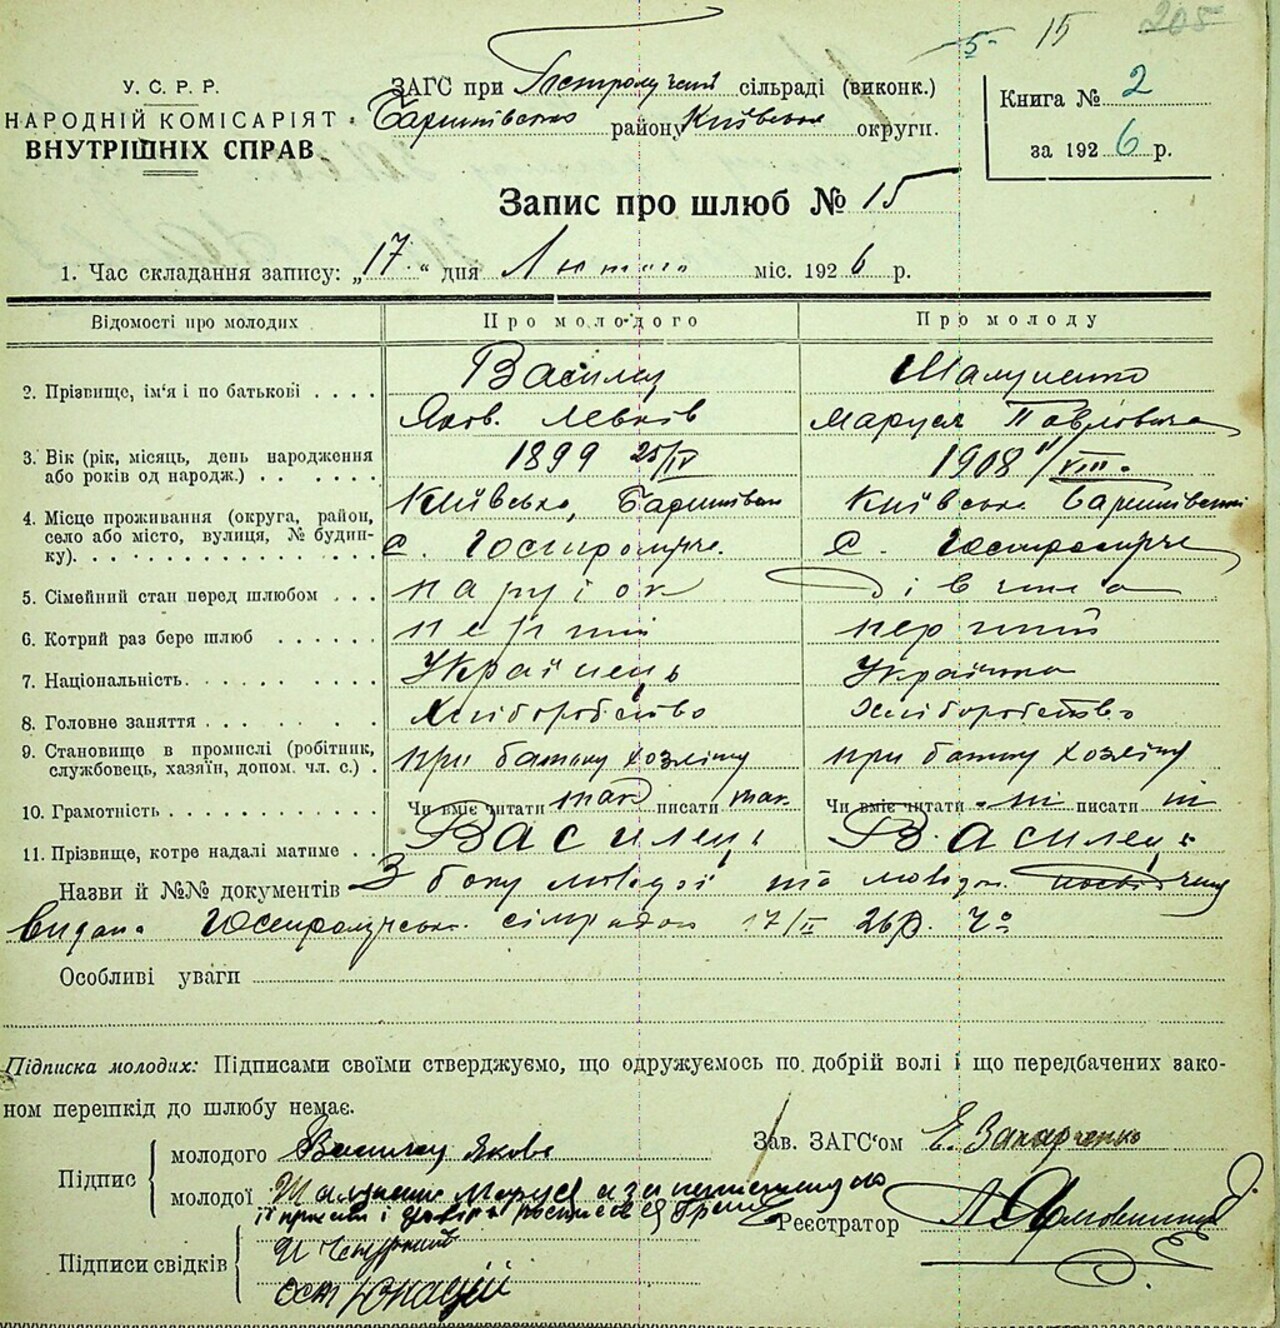 5 15 205
У. С. Р. Р.
НАРОДНІЙ КОМІСАРІЯТ
ВНУТРІШНІХ СПРАВ
ЗАГС при сільраді (виконк.)
району Київська округи.
Книга № 2
за 1926 р.
Запис про шлюб № 15
1. Час складання запису: „17“ дня Лютого міс. 1926 р.
Відомості про молодих Про молодого Про молоду
2. Прізвище, ім‘я і по батькові Василец
Яков. Левків Маруся Павловича
3. Вік (рік, місяць, день народження або років од народж.) 1899 25/IV 1908 /VIII.
4. Місце проживання (округа, район, село або місто, вулиця, № будинку). Київська, Баришівськ Київська Баришівський
с. Гостролуччє. с. Гостролуччє
5. Сімейний стан перед шлюбом парубок дівчина
6. Котрий раз бере шлюб перший перший
7. Національність Українець Українка
8. Головне заняття Хліборобство Хліборобство
9. Становище в промислі (робітник, службовець, хазяїн, допом. чл. с.) при батьку хозяїну при батьку хозяїну
10. Грамотність Чи вміє читати так писати так Чи вміє читати ні писати ні
11. Прізвище, котре надалі матиме Василець Василець
Назви й №№ документів З боку молодої та молодого
видана сільрадою 17/II 26р.
Особливі уваги
Підписка молодих: Підписами своїми стверджуємо, що одружуємось по добрій волі і що передбачених зако-
ном перешкід до шлюбу немає.
Підпис молодого Василец Якове
молодої Маруся а за неписьменую
її
Підписи свідків
Зав. ЗАГС‘ом Е. Захарченко
Реєстратор